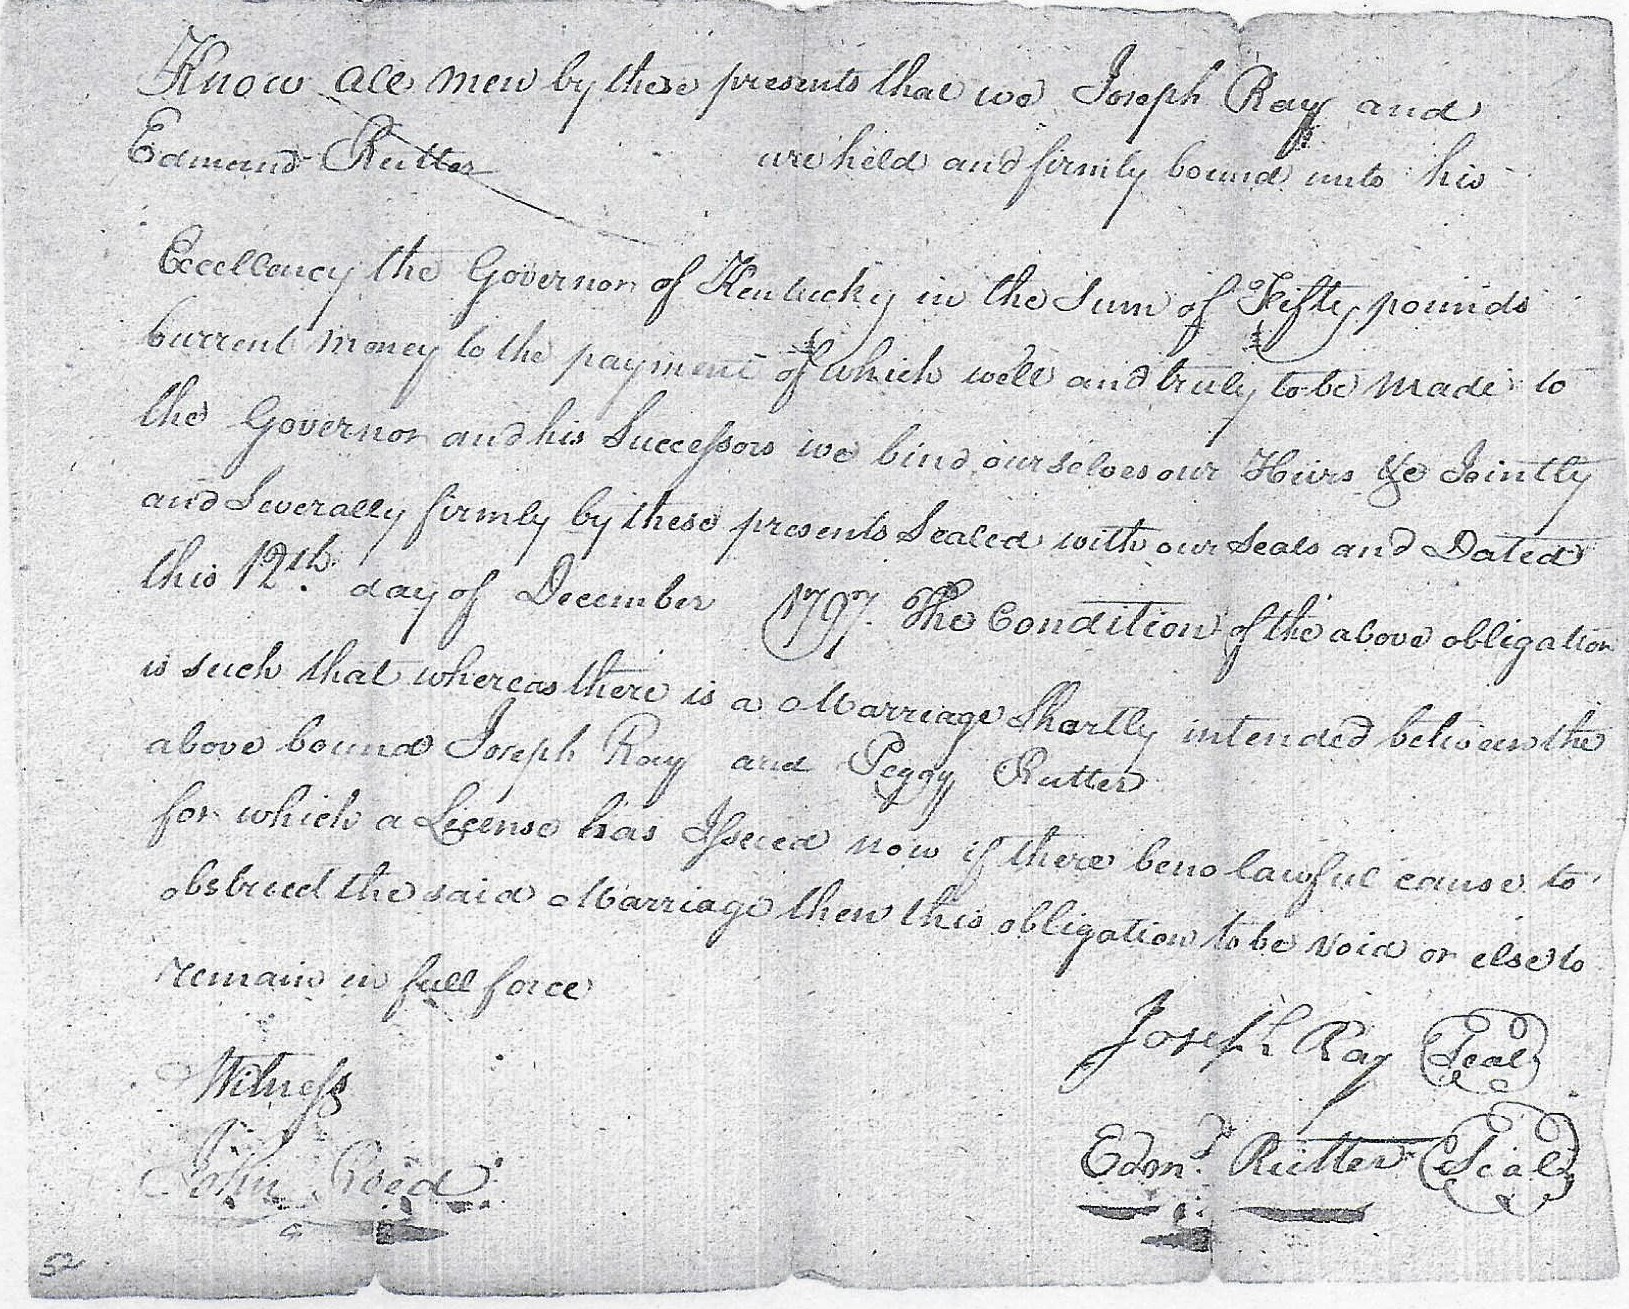 Know all men by these presents that we Joseph Ray and
Edmund Rutter are held and firmly bound unto his
Excellency the Governor of Kentucky in the Sum of Fifty pounds
Current Money to the payment of which well and truly to be made to
the Governor and his Successors we bind ourselves our Heirs &c Jointly
and Severally firmly by these presents Sealed with our Seals and Dated
this 12th. day of December 1797. The Condition of the above obligation
is such that whereas there is a Marriage Shortly intended between the
above bound Joseph Ray and Peggy Rutter
for which a License has Issued now if there be no lawful cause to
obstruct the said Marriage then this obligation to be void or else to
remain in full force
Joseph Ray Seal
Witness
Edmd. Rutter Seal
John Reed
52